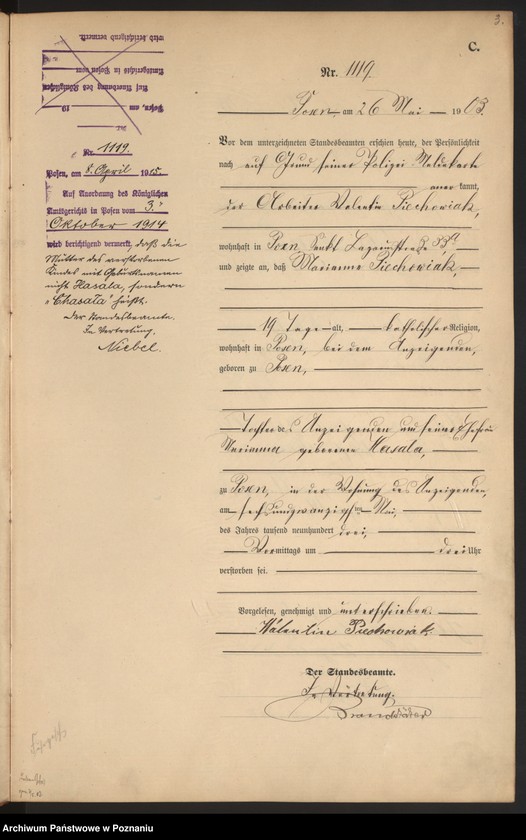 3.
C.
Nr. 1119.
Posen, am 26 Mai 1903.
Vor dem unterzeichneten Standesbeamten erschien heute, der Persönlichkeit
nach auf Grund seiner Polizei-Meldekarte
anerkannt,
der Arbeiter Valentin Piechowiak,
wohnhaft in Posen, Sankt Lazarusstraße
und zeigte an, daß Marianna Piechowiak,
19 Tage alt, katholischer Religion,
wohnhaft in Posen, bei dem Anzeigenden,
geboren zu Posen,
Tochter des Anzeigenden und seiner Ehefrau
Marianna geborenen Hasala,
zu Posen, in der Wohnung des Anzeigenden,
am sechsundzwanzigsten Mai,
des Jahres tausend neunhundert drei,
Vormittags um drei Uhr
verstorben sei.
Vorgelesen, genehmigt und unterschrieben.
Walentin Piechowiak.
Der Standesbeamte.
In Vertretung.
Posen, am 19
Auf Anordnung des Königlichen
Amtsgerichts in Posen vom
wird berichtigend vermerkt,
Nr. 1119.
Posen, am 8. April 1915.
Auf Anordnung des Königlichen
Amtsgerichts in Posen vom 3.
Oktober 1914
wird berichtigend vermerkt, daß die
Mutter des verstorbenen
Kindes mit Geburtsnamen
nicht Hasala, sondern
"Chasała" heißt.
Der Standesbeamte.
In Vertretung.
Niebel.
Archiwum Państwowe w Poznaniu